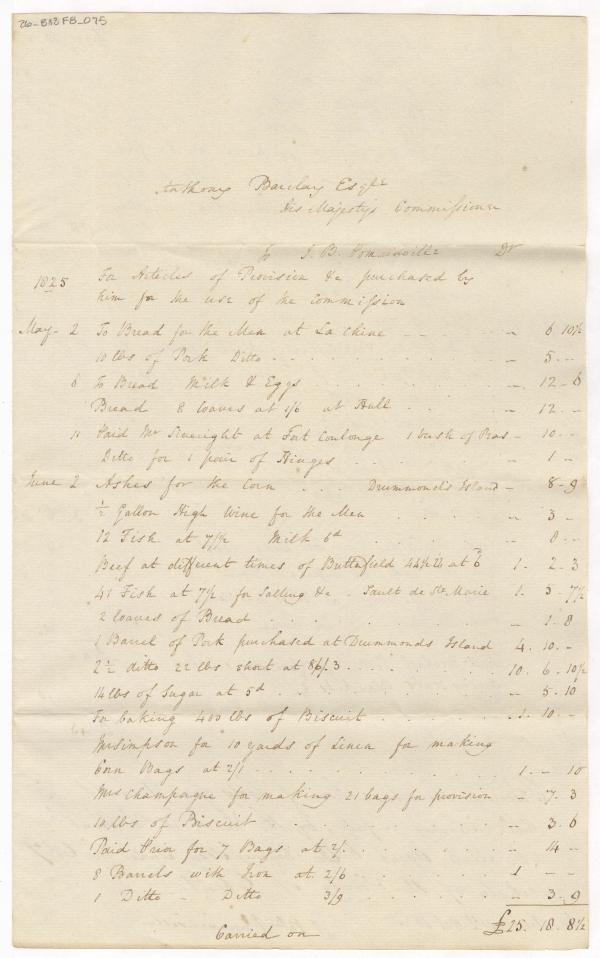 26-BNSFB_075
Anthony Barclay Esqre
His Majesty's Commissioner
To J. B. Pomainville Dr
1825 For Articles of Provision &c purchased by
him for the use of the Commission
May - 2 To Bread for the Men at La Chine - - - 6 10½
10 lbs of Pork Ditto - 5 - -
6 To Bread Milk & Eggs - 12 - 6
Bread 8 loaves at 1/6 at Hull - 12 - -
11 Paid Mr at Fort Coulonge 1 bush of Peas - 10 - -
Ditto for 1 pair of Hinges - 1 -
June 2 Ashes for the Corn Drummond's Island - 8 - 9
½ Gallon High Wine for the Men - 3 -
12 Fish at 7½ Milk 6d - 8 - -
Beef at different times of Butterfield at 6d 1 - 2 - 3
41 Fish at 7½ for Salting &c Sault de Ste Marie 1 - 5 - 7½
2 loaves of Bread - 1 - 8
1 Barrel of Pork purchased at Drummonds Island 4 - 10 - -
2½ ditto 22 lbs short at 86/3 10 - 6 - 10½
14 lbs of Sugar at 5d - 5 - 10
For baking 400 lbs of Biscuit 1 - 10 - -
Mr Simpson for 10 yards of Linen for making
Corn Bags at 2/1 1 - - 10
Mrs Champagne for making 21 bags for provision - 7 - 3
10 lbs of Biscuit - 3 - 6
Paid for 7 Bags at 2/. - 14 - -
8 Barrels with Iron at 2/6 1 - -
1 Ditto - Ditto 3/9 - 3 - 9
£25 - 18 - 8½
Carried on